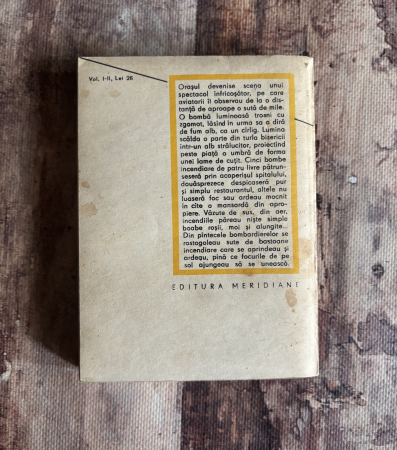 Vol. I-II, Lei 26
Orașul devenise scena unui
spectacol înfricoșător, pe care
aviatorii îl observau de la o dis-
tanță de aproape o sută de mile.
O bombă luminoasă trosni cu
zgomot, lăsînd în urma sa o dîră
de fum alb, ca un cîrlig. Lumina
scălda o parte din turla bisericii
într-un alb strălucitor, proiectînd
peste piață o umbră de forma
unei lame de cuțit. Cinci bombe
incendiare de patru livre pătrun-
seseră prin acoperișul spitalului,
douăsprezece despicaseră pur
și simplu restaurantul, altele nu
luaseră foc sau ardeau mocnit
în cîte o mansardă din apro-
piere. Văzute de sus, din aer,
incendiile păreau niște simple
boabe roșii, moi și alungite...
Din pîntecele bombardierelor se
rostogoleau sute de bastoane
incendiare care se aprindeau și
ardeau, pînă ce focurile de pe
sol ajungeau să se unească.
EDITURA MERIDIANE